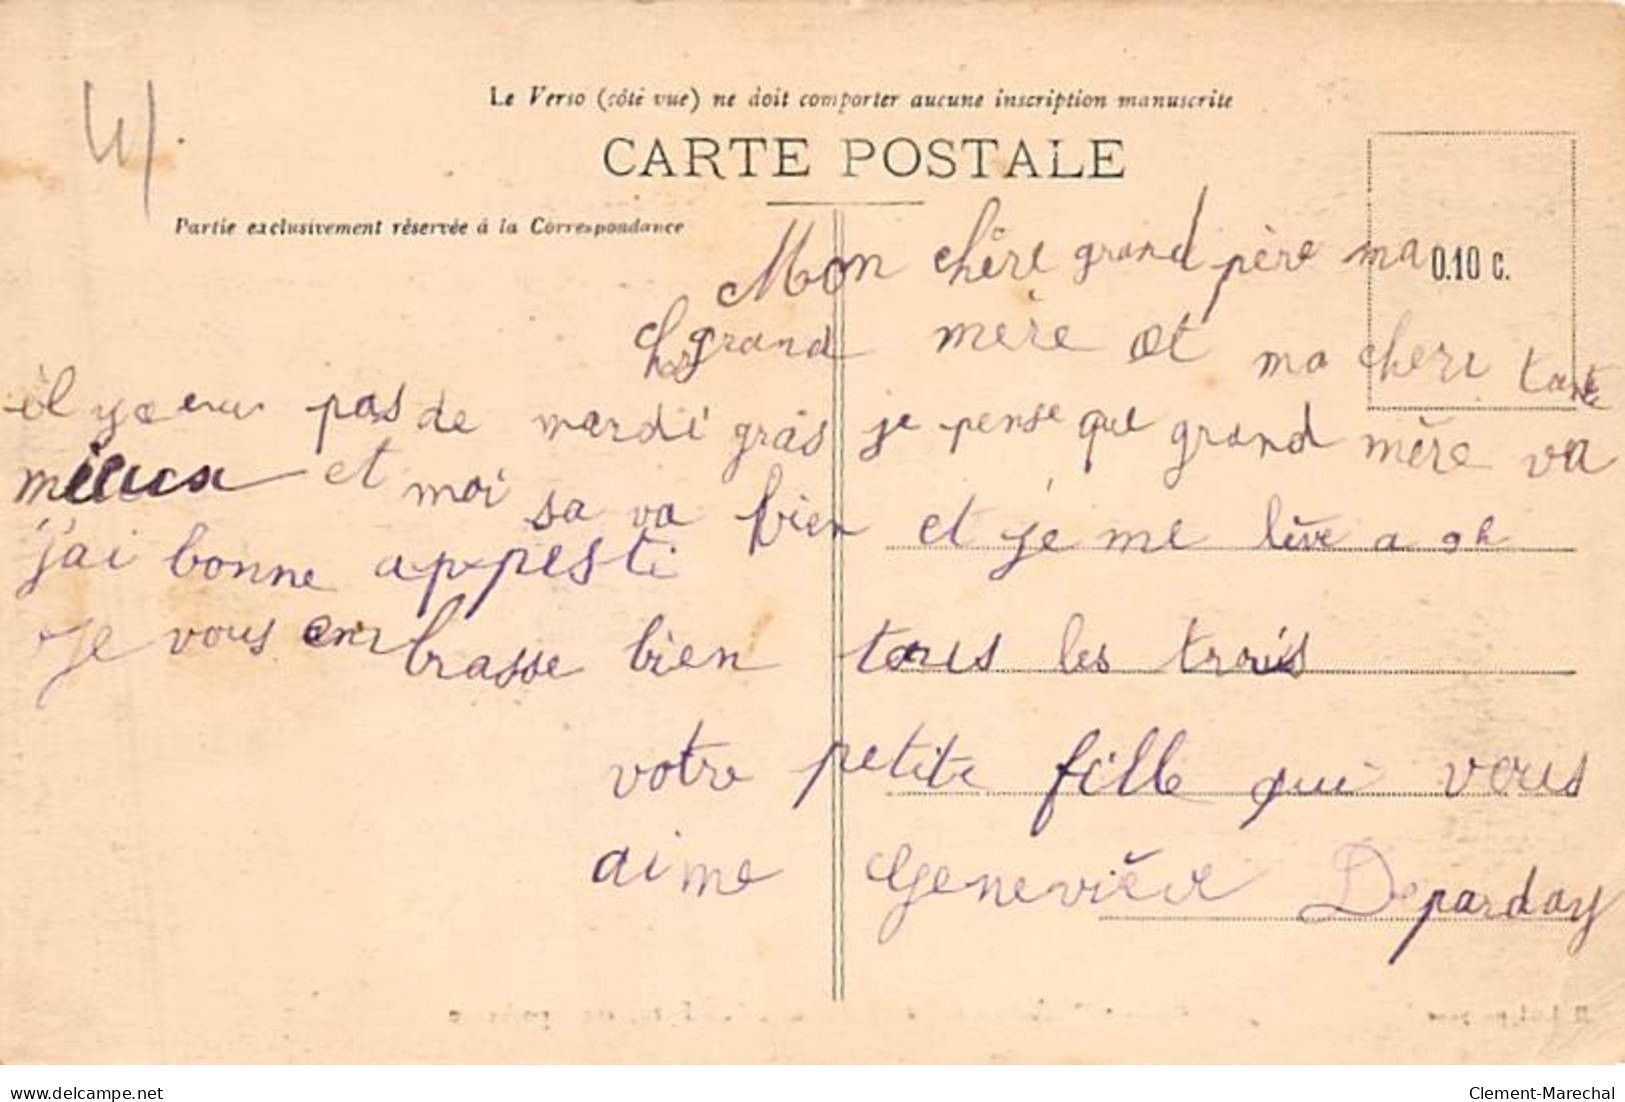 Le Verso (côté vue) ne doit comporter aucune inscription manuscrite
CARTE POSTALE
Partie exclusivement réservée à la Correspondance
0.10 c.
Mon chère grand père ma
grand mère et ma cheri tante
il y a eu pas de mardi gras je pense que grand mère va
mieux et moi sa va bien et je me lève a 9h
j'ai bonne appesti
je vous embrasse bien tous les trois
votre petite fille qui vous
aime Geneviève Deparday
delcampe.net
Clement-Marechal